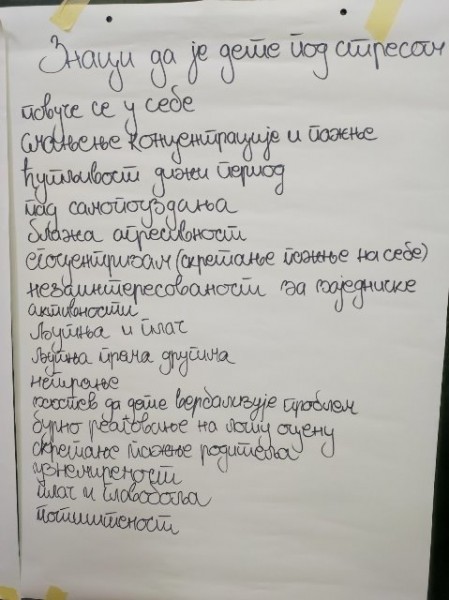 Знаци да је дете под стресом
повуче се у себе
смањење концентрације и пажње
ћутљивост дужи период
пад самопоуздања
блажа агресивност
егоцентризам (скретање пажње на себе)
незаинтересованост за заједниске
активности
љутња и плач
љутња према другима
нетирање
захтев да дете вербализује проблем
бурно реаговање на лошу оцену
скретање пажње родитеља
узнемиреност
плач и главобоља
потиштеност